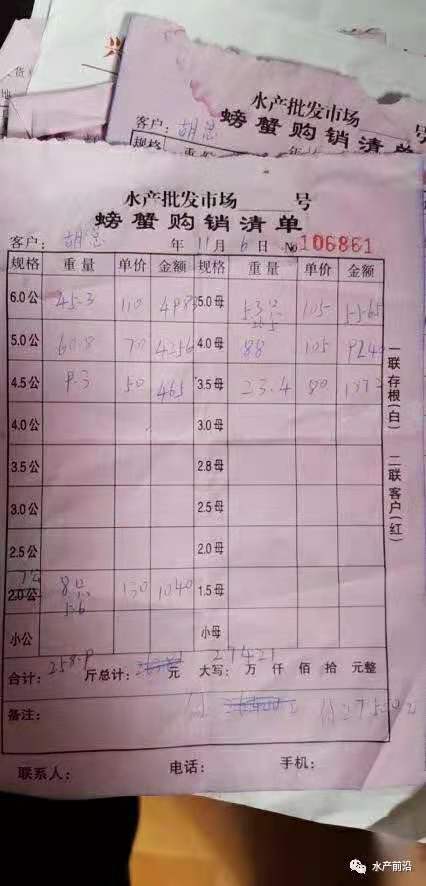 水产批发市场 号
螃蟹购销清单
客户: 胡
规格 重量
水产批发市场 号
螃蟹购销清单
客户: 胡 年 11 月 6 日 No 106861
规格 重量 单价 金额 规格 重量 单价 金额
6.0公 45.3 110 4983 5.0母 53 105 5565
5.0公 60.8 70 4256 4.0母 88 105 9240
4.5公 9.3 50 465 3.5母 23.4 80 1872
4.0公 3.0母
3.5公 2.8母
3.0公 2.5母
2.5公 2.0母
2.0公 8 130 1040 1.5母
小公 小母
合计: 258.9 斤总计: 元 大写: 27421 万 仟 佰 拾 元整
备注:
联系人: 电话: 手机:
一联存根(白) 二联客户(红)
水产前沿